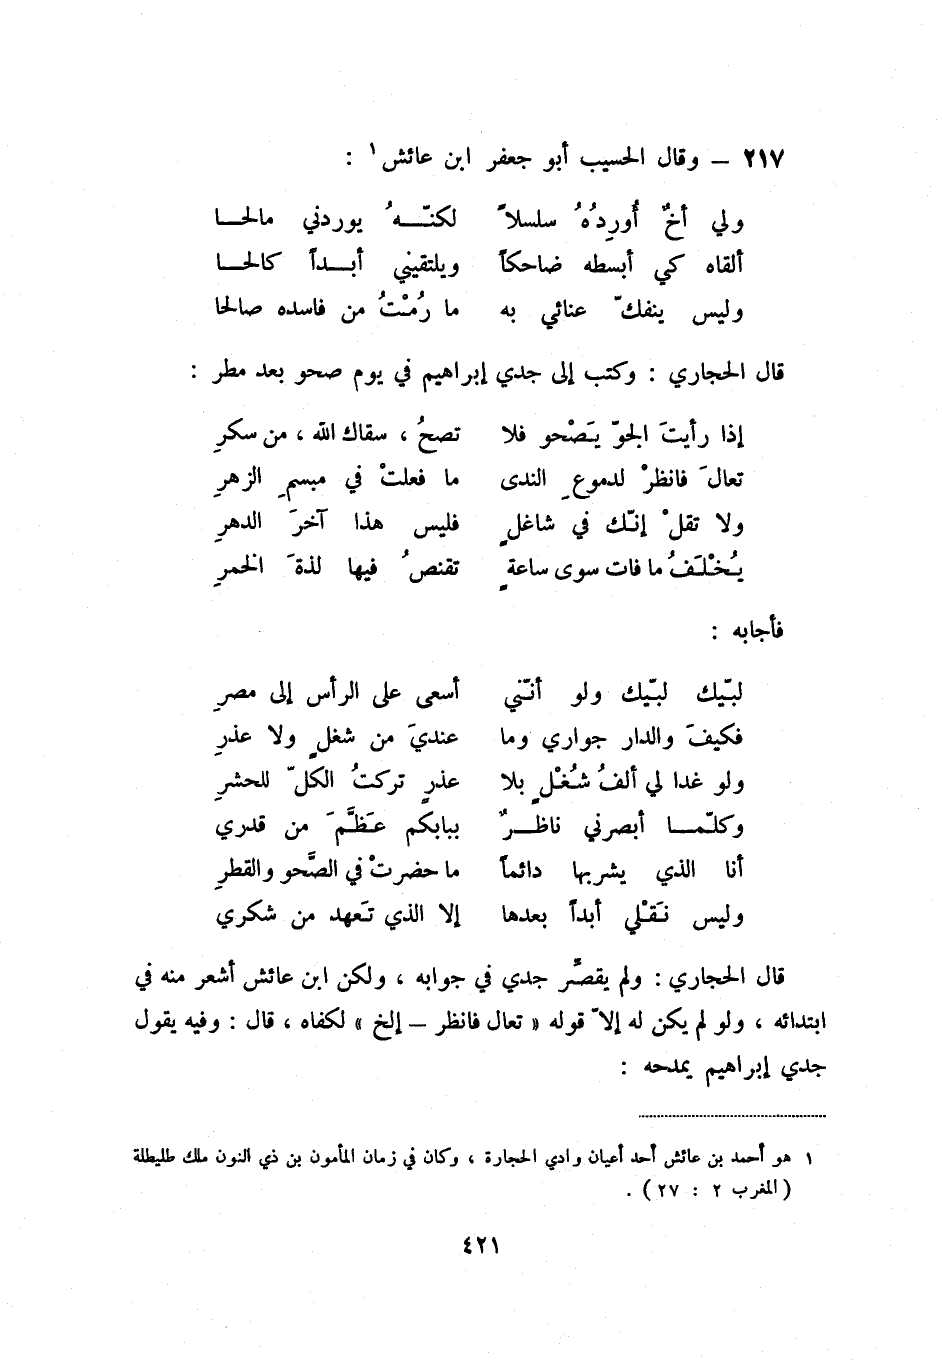 ٢١٧ – وقال الحسيب أبو جعفر ابن عائش١ :
ولي أخٌ أُورِدُهُ سلسلاً لكنّـــهُ يوردني مالحـــا
ألقاه كي أبسطه ضاحكاً ويلتقيني أبـــداً كالحـــا
وليس ينفكّ عنائي به ما رُمْتُ من فاسده صالحا
قال الحجاري : وكتب إلى جدي إبراهيم في يوم صحو بعد مطر :
إذا رأيتَ الجوّ يَصْحو فلا تصحُ ، سقاك الله ، من سكرِ
تعالَ فانظرْ لدموعِ الندى ما فعلتْ في مبسمِ الزهرِ
ولا تقلْ إنّك في شاغلٍ فليس هذا آخرَ الدهرِ
يُخْلَفُ ما فات سوى ساعةٍ تقنصُ فيها لذةَ الخمرِ
فأجابه :
لبّيك لبّيك ولو أنّني أسعى على الرأس إلى مصرِ
فكيفَ والدار جواري وما عنديَ من شغلٍ ولا عذرِ
ولو غدا لي ألفُ شُغْلٍ بلا عذرٍ تركتُ الكلّ للحشرِ
وكلّمـــا أبصرني ناظـــرٌ ببابكم عَظَّمَ من قدري
أنا الذي يشربها دائماً ما حضرتْ في الصَّحو والقطرِ
وليس نَقْلي أبداً بعدها إلا الذي تَعهد من شكري
قال الحجاري : ولم يقصِّر جدي في جوابه ، ولكن ابن عائش أشعر منه في
ابتدائه ، ولو لم يكن له إلاّ قوله « تعال فانظر – إلخ » لكفاه ، قال : وفيه يقول
جدي إبراهيم يمدحه :
١ هو أحمد بن عائش أحد أعيان وادي الحجارة ، وكان في زمان المأمون بن ذي النون ملك طليطلة
( المغرب ٢ : ٢٧ ) .
٤٢١